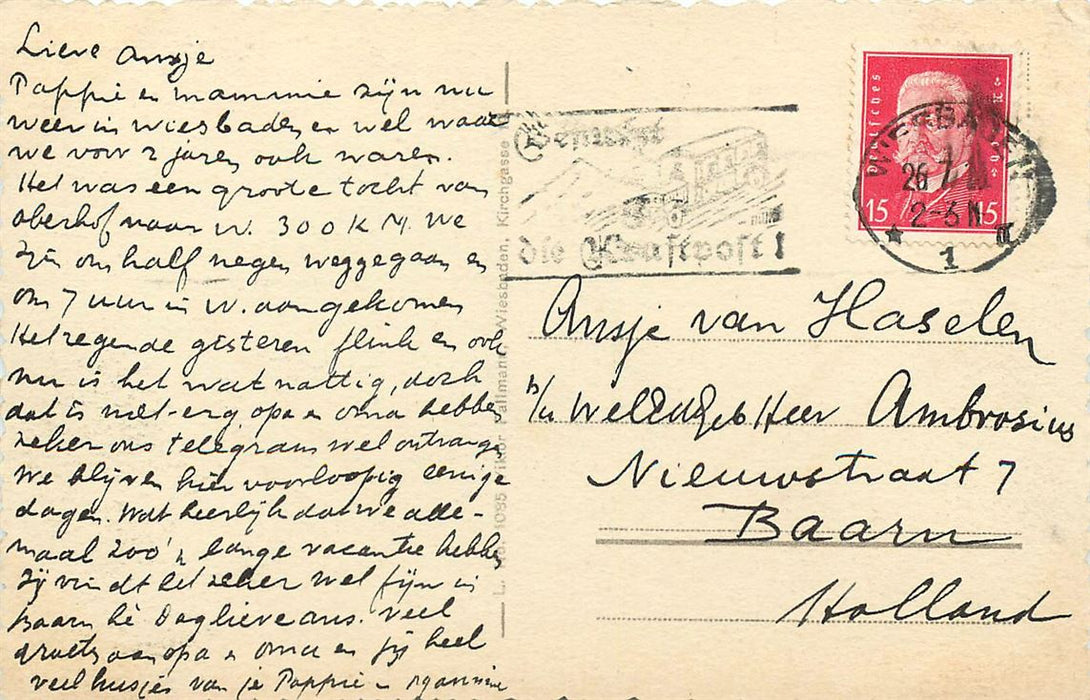 Lieve Ansje
Pappie en mammie zijn nu
weer in Wiesbaden en wel waar
we voor 2 jaren ook waren.
Het was een groote tocht van
Oberhof naar W. 300 K.M. We
zijn om half negen weggegaan en
om 7 uur in W. aangekomen
Het regende gisteren flink en ook
nu is het wat nattig, doch
dat is niet erg opa en oma hebben
zeker ons telegram wel ontvangen
We blijven hier voorloopig eenige
dagen. Wat heerlijk dat we alle-
maal zoo'n lange vacantie hebben
Jij vindt het zeker wel fijn in
Baarn hè Dag lieve ans. Veel
groeten aan opa en oma en jij heel
veel kusjes van je Pappie en Mammie
L. 1085 Viktor Wiesbaden, Kirchgasse
Benutzt
die Kraftpost!
Deutsches
15 15
WIESBADEN
26 7
2-6 N
* 1
Ansje van Haselen
Weledgeb Heer Ambrosius
Nieuwstraat 7
Baarn
Holland